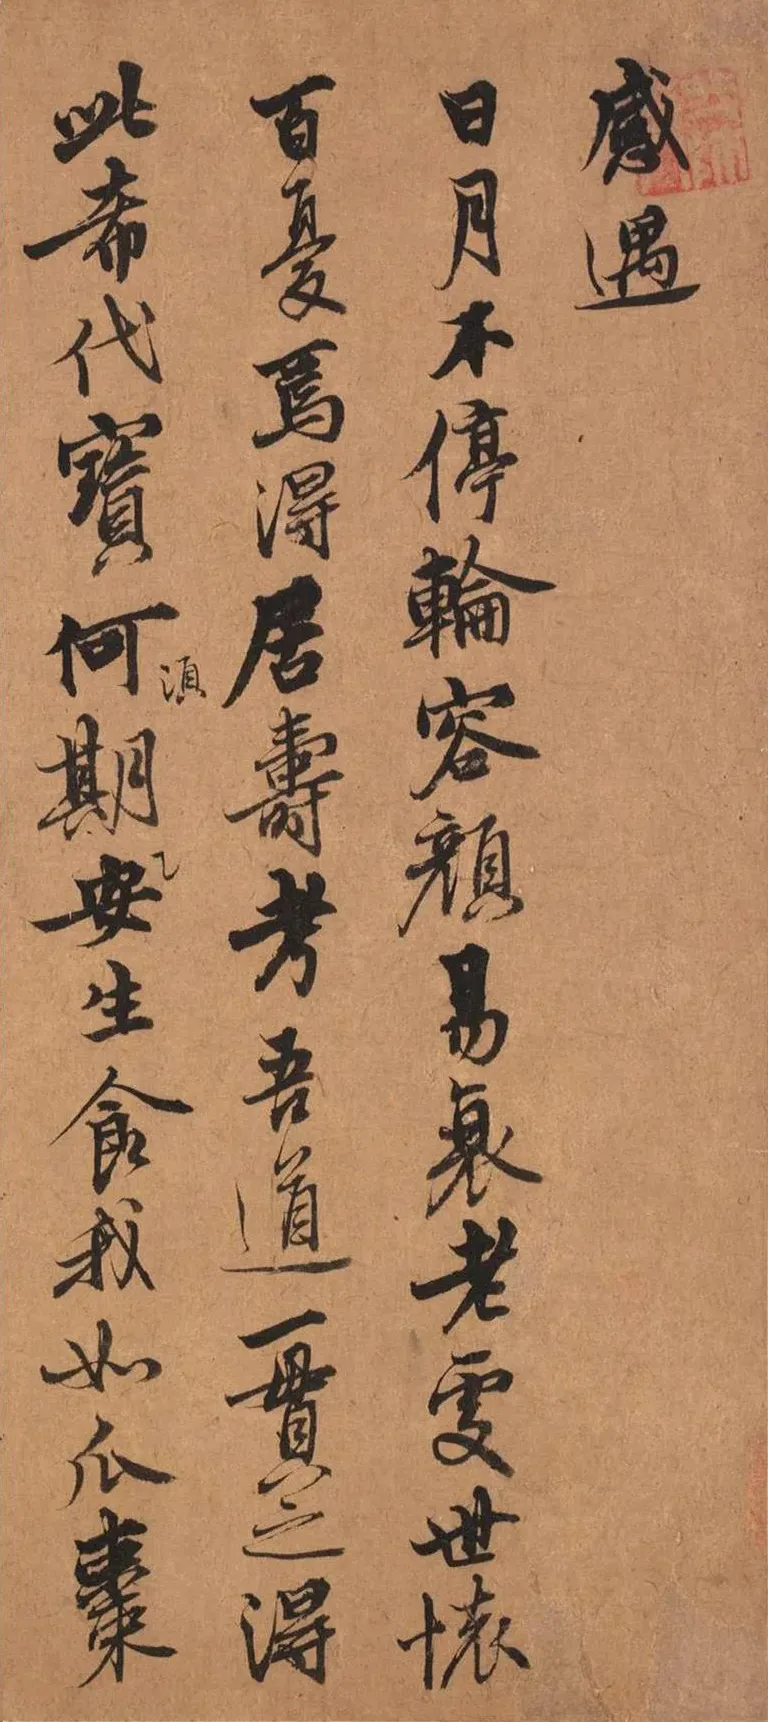 感遇
日月不停輪容顏易衰老處世懷
百憂焉得居壽考吾道一貫之得
此希代寶何須期安生食我如瓜棗